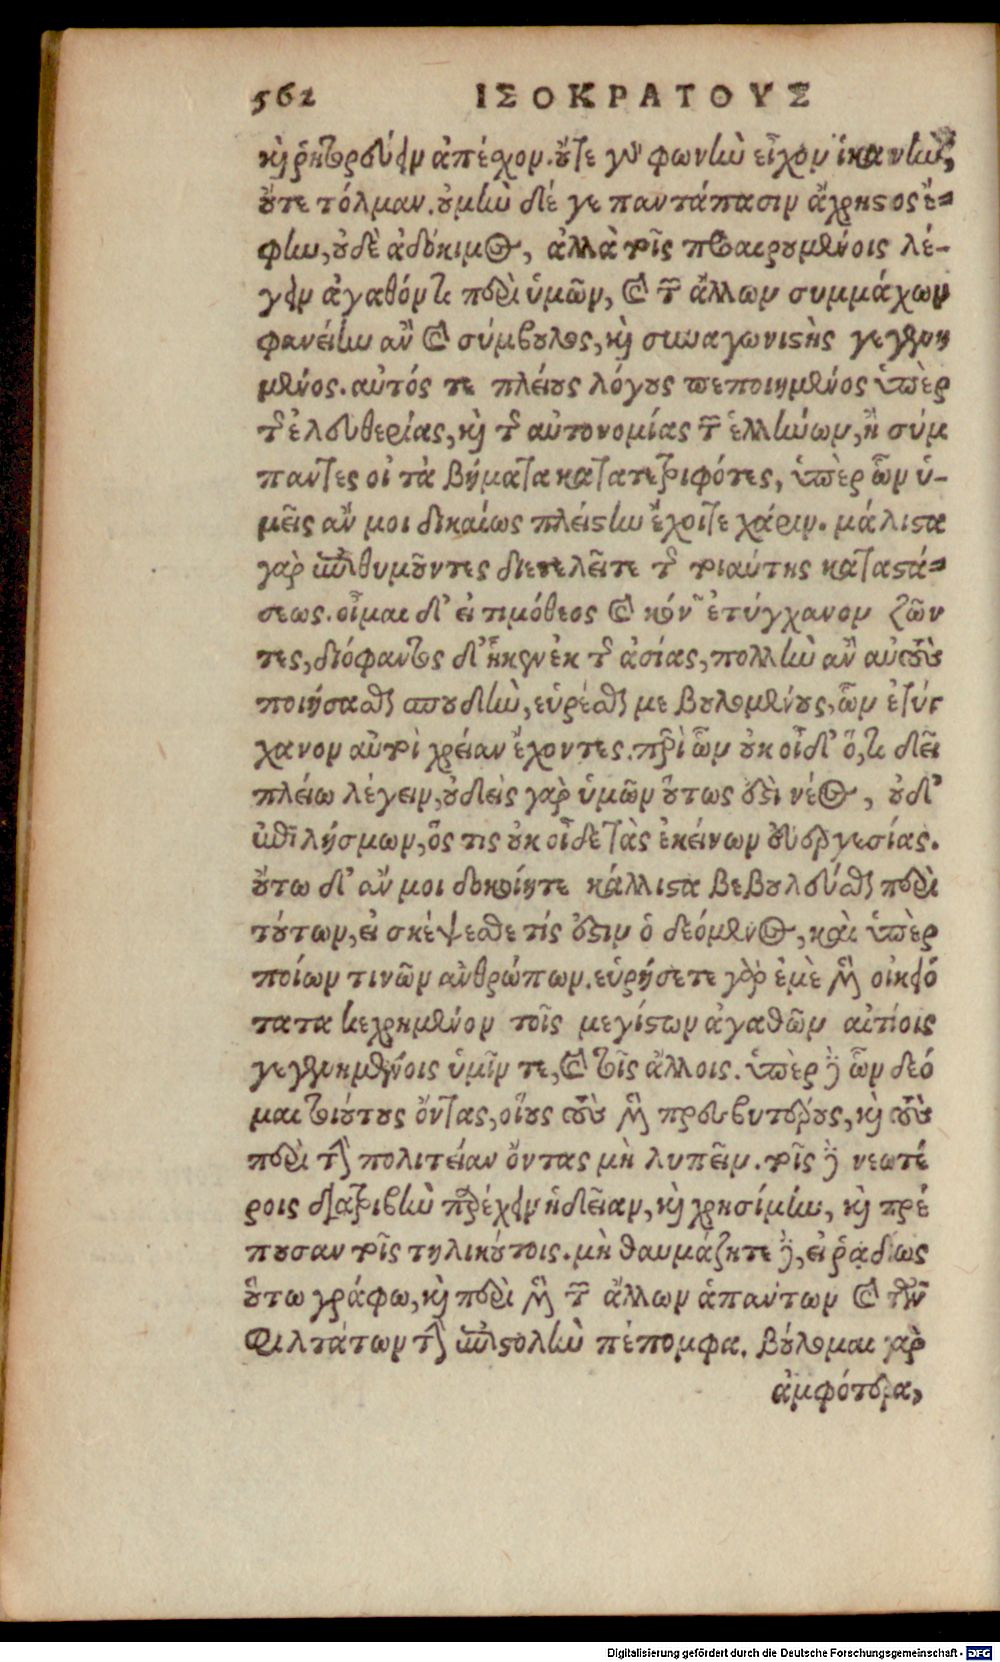 562 ΙΣΟΚΡΑΤΟΥΣ
καὶ ῥητορεύειν ἀπέχομ. οὔτε γὰρ φωνὴν εἶχομ ἱκανὴν,
οὔτε τόλμαν. οὐ μὴν δέ γε παντάπασιν ἄχρηστος ἔ-
φυν, οὐδὲ ἀδόκιμος, ἀλλὰ τοῖς προαιρουμένοις λέ-
γειν ἀγαθόν τι περὶ ὑμῶν, καὶ τῶν ἄλλων συμμάχων
φανείην ἂν καὶ σύμβουλος, καὶ συναγωνιστὴς γεγενη
μένος. αὐτός τε πλείους λόγους πεποιημένος ὑπὲρ
τῆς ἐλευθερίας, καὶ τῆς αὐτονομίας τῶν ἑλλήνων, ἢ σύμ
παντες οἱ τὰ βήματα κατατετριφότες, ὑπὲρ ὧν ὑ-
μεῖς ἄν μοι δικαίως πλείστην ἔχοιτε χάριν. μάλιστα
γὰρ ἐπιθυμοῦντες διετελεῖτε τῆς τοιαύτης καταστά-
σεως. οἶμαι δ' εἰ τιμόθεος καὶ κόνων ἐτύγχανον ζῶν
τες, διόφαντος δ' ἧκεν ἐκ τῆς ἀσίας, πολλὴν ἂν αὐτοὺς
ποιήσασθαι σπουδὴν, εὑρέσθαι με βουλομένους, ὧν ἐτύγ
χανον αὐτοὶ χρείαν ἔχοντες. περὶ ὧν οὐκ οἶδ' ὅ, τι δεῖ
πλείω λέγειν, οὐδεὶς γὰρ ὑμῶν οὕτως ἐστὶ νέος, οὐδ'
ἐπιλήσμων, ὅς τις οὐκ οἶδε τὰς ἐκείνων εὐεργεσίας.
οὕτω δ' ἄν μοι δοκοίητε κάλλιστα βεβουλεῦσθαι περὶ
τούτων, εἰ σκέψεσθε τίς ἐστιν ὁ δεόμενος, καὶ ὑπὲρ
ποίων τινῶν ἀνθρώπων. εὑρήσετε γὰρ ἐμὲ μὲν οἰκειό
τατα κεχρημένον τοῖς μεγίστων ἀγαθῶν αἰτίοις
γεγενημένοις ὑμῖν τε, καὶ τοῖς ἄλλοις. ὑπὲρ δὲ ὧν δέο
μαι τοιούτους ὄντας, οἵους τοὺς μὲν πρεσβυτέρους, καὶ τοὺς
περὶ τὴν πολιτείαν ὄντας μὴ λυπεῖν. τοῖς δὲ νεωτέ
ροις διατριβὴν παρέχειν ἡδεῖαν, καὶ χρησίμην, καὶ πρέ
πουσαν τοῖς τηλικούτοις. μὴ θαυμάζητε δὲ, εἰ ῥᾳδίως
οὕτω γράφω, καὶ περὶ μὲν τῶν ἄλλων ἁπάντων καὶ τῶν
φιλτάτων τὴν ἐπιστολὴν πέπομφα. βούλομαι γὰρ
ἀμφότερα,
Digitalisierung gefördert durch die Deutsche Forschungsgemeinschaft - DFG